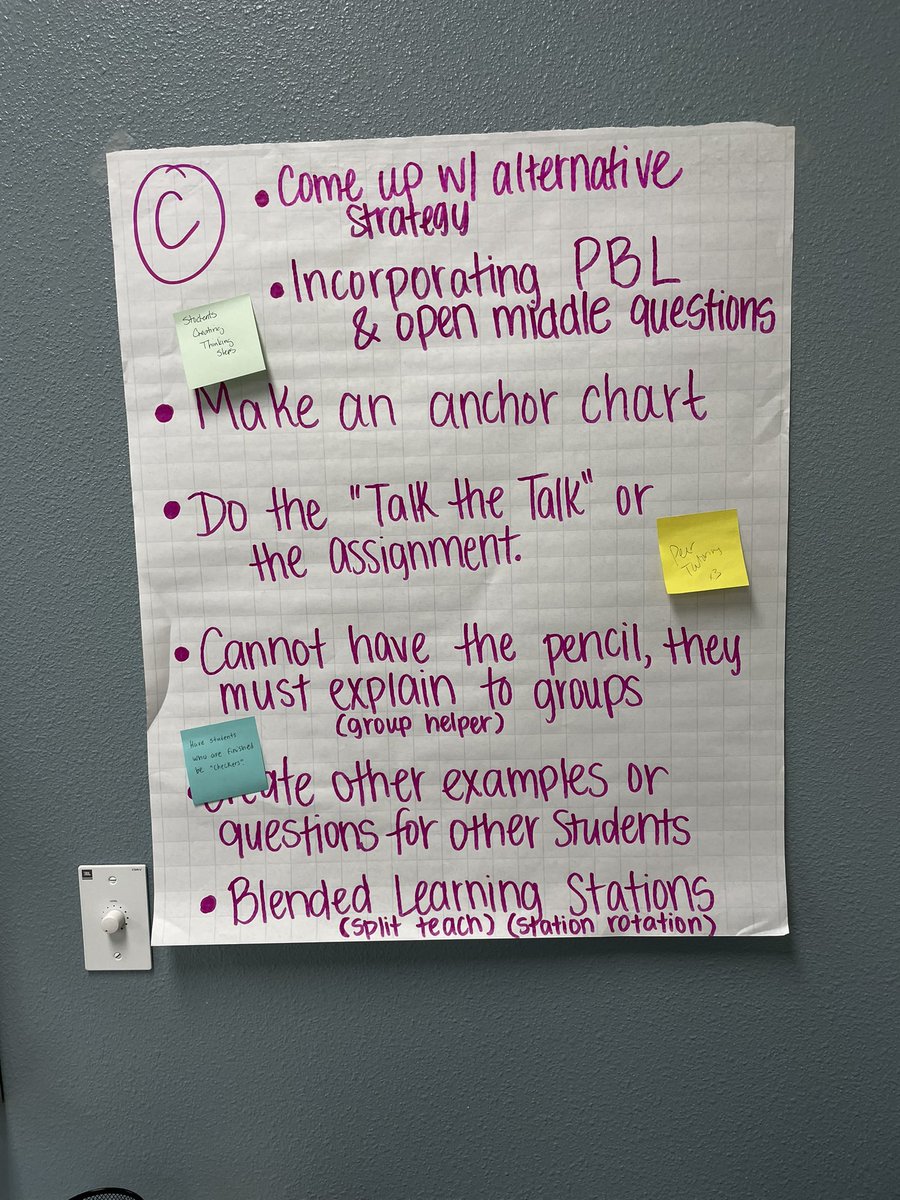 C
• Come up w/ alternative
strategy
• Incorporating PBL
& open middle questions
Students
Creating
Thinking
Steps
• Make an anchor chart
• Do the "Talk the Talk" or
the assignment.
Peer
Tutoring
<3
• Cannot have the pencil, they
must explain to groups
(group helper)
Have students
who are finished
be "Checkers".
• Create other examples or
questions for other Students
• Blended Learning Stations
(split teach) (station rotation)
JBL